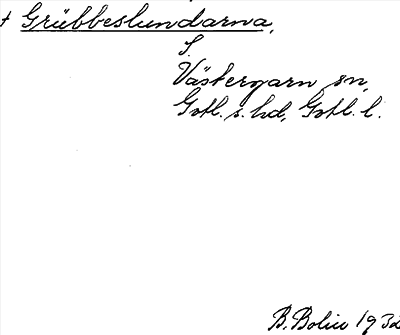 + Grübbeslundarna,
S.
Västergarn sn,
Gotl. s. hd, Gotl. l.
B. Bolin 1932